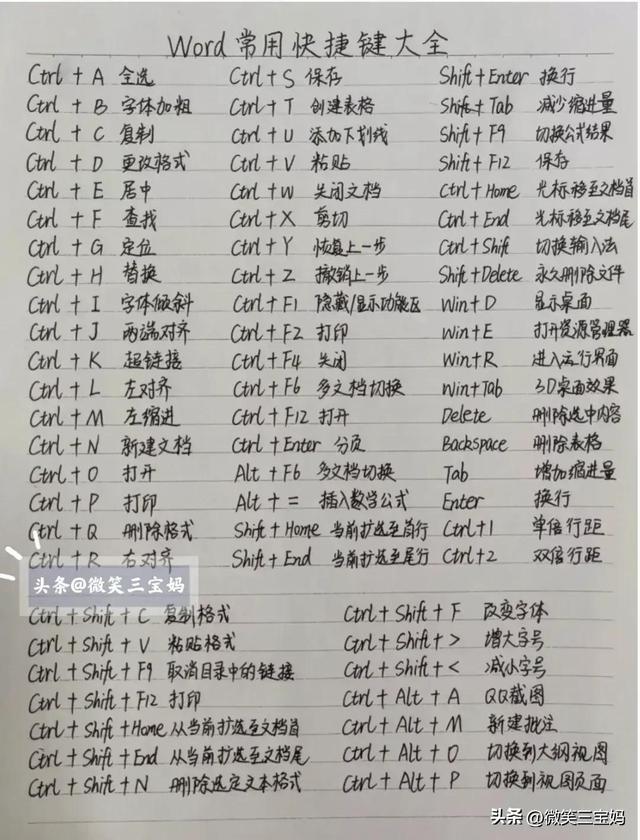 Word常用快捷键大全
Ctrl + A 全选 Ctrl + S 保存 Shift + Enter 换行
Ctrl + B 字体加粗 Ctrl + T 创建表格 Shift + Tab 减少缩进量
Ctrl + C 复制 Ctrl + U 添加下划线 Shift + F9 切换公式结果
Ctrl + D 更改格式 Ctrl + V 粘贴 Shift + F12 保存
Ctrl + E 居中 Ctrl + W 关闭文档 Ctrl + Home 光标移至文档首
Ctrl + F 查找 Ctrl + X 剪切 Ctrl + End 光标移至文档尾
Ctrl + G 定位 Ctrl + Y 恢复上一步 Ctrl + Shift 切换输入法
Ctrl + H 替换 Ctrl + Z 撤销上一步 Shift + Delete 永久删除文件
Ctrl + I 字体倾斜 Ctrl + F1 隐藏/显示功能区 Win + D 显示桌面
Ctrl + J 两端对齐 Ctrl + F2 打印 Win + E 打开资源管理器
Ctrl + K 超链接 Ctrl + F4 关闭 Win + R 进入运行界面
Ctrl + L 左对齐 Ctrl + F6 多文档切换 Win + Tab 3D桌面效果
Ctrl + M 左缩进 Ctrl + F12 打开 Delete 删除选中内容
Ctrl + N 新建文档 Ctrl + Enter 分页 Backspace 删除表格
Ctrl + O 打开 Alt + F6 多文档切换 Tab 增加缩进量
Ctrl + P 打印 Alt + = 插入数学公式 Enter 换行
Ctrl + Q 删除格式 Shift + Home 当前扩选至首行 Ctrl + 1 单倍行距
Ctrl + R 右对齐 Shift + End 当前扩选至尾行 Ctrl + 2 双倍行距
头条@微笑三宝妈
Ctrl + Shift + C 复制格式 Ctrl + Shift + F 改变字体
Ctrl + Shift + V 粘贴格式 Ctrl + Shift + > 增大字号
Ctrl + Shift + F9 取消目录中的链接 Ctrl + Shift + < 减小字号
Ctrl + Shift + F12 打印 Ctrl + Alt + A QQ截图
Ctrl + Shift + Home 从当前扩选至文档首 Ctrl + Alt + M 新建批注
Ctrl + Shift + End 从当前扩选至文档尾 Ctrl + Alt + O 切换到大纲视图
Ctrl + Shift + N 删除选定文本格式 Ctrl + Alt + P 切换到视图页面
头条@微笑三宝妈